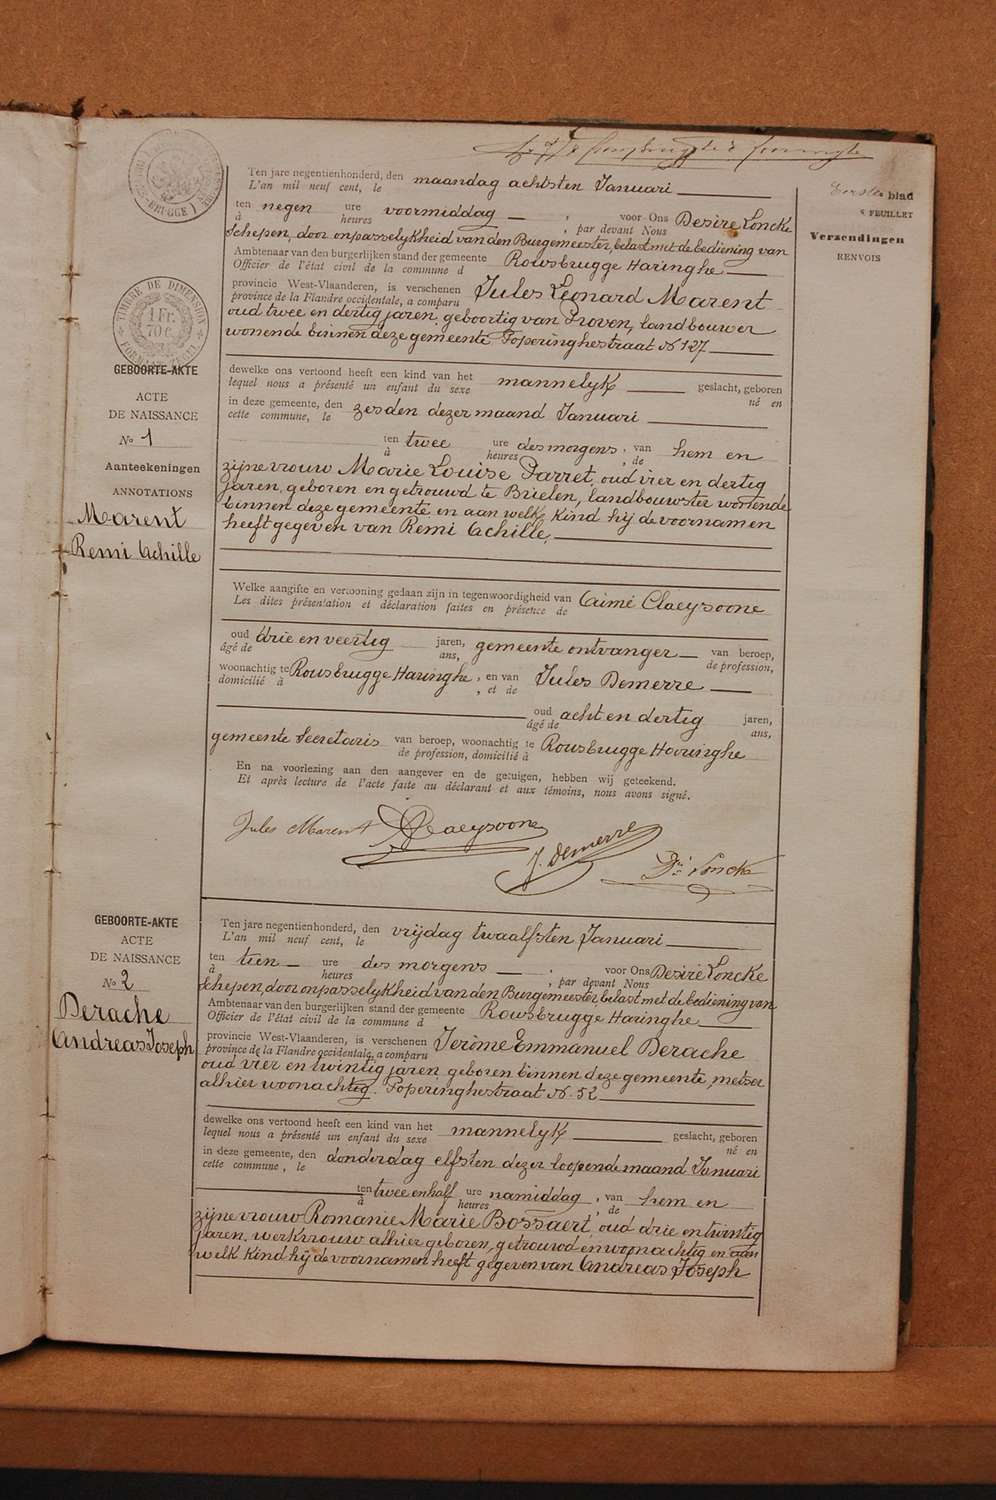 Eerste blad
FEUILLET
Verzendingen
RENVOIS
TIMBRE DE DIMENSION
1 Fr.
70 c.
GEBOORTE-AKTE
ACTE
DE NAISSANCE
No 1
Aanteekeningen
ANNOTATIONS
Marent
Remi Achille
Ten jare negentienhonderd, den maandag achtsten Januari
L'an mil neuf cent, le
ten negen ure voormiddag, voor Ons Desiré Loncke
à heures, par devant Nous
Schepen, door onpasselykheid van den Burgemeester, belast met de bediening van
Ambtenaar van den burgerlijken stand der gemeente Rousbrugge Haringhe
Officier de l'état civil de la commune d
provincie West-Vlaanderen, is verschenen Jules Léonard Marent
province de la Flandre occidentale, a comparu
oud twee en dertig jaren, geboortig van Proven, landbouwer
wonende binnen deze gemeente, Poperinghestraat No 127
dewelke ons vertoond heeft een kind van het mannelyk geslacht, geboren
lequel nous a présenté un enfant du sexe né en
in deze gemeente, den zesden dezer maand Januari
cette commune, le
ten twee ure des morgens, van hem en
à heures, de
zijne vrouw Marie Louise Parret, oud vier en dertig
jaren, geboren en getrouwd te Brielen, landbouwster wonende
binnen deze gemeente en aan welk kind hij de voornamen
heeft gegeven van Remi Achille,
Welke aangifte en vertooning gedaan zijn in tegenwoordigheid van Aimé Claeysoone
Les dites présentation et déclaration faites en présence de
oud drie en veertig jaren, gemeente ontvanger van beroep,
âgé de ans, de profession,
woonachtig te Rousbrugge Haringhe, en van Jules Demerre
domicilié à, et de
oud acht en dertig jaren,
âgé de ans,
gemeente Secretaris van beroep, woonachtig te Rousbrugge Haringhe
de profession, domicilié à
En na voorlezing aan den aangever en de getuigen, hebben wij geteekend.
Et après lecture de l'acte faite au déclarant et aux témoins, nous avons signé.
Jules Marent Claeysoone
J. Demerre
Dré Loncke
GEBOORTE-AKTE
ACTE
DE NAISSANCE
No 2
Derache
Andreas Joseph
Ten jare negentienhonderd, den vrijdag twaalfsten Januari
L'an mil neuf cent, le
ten tien ure des morgens, voor Ons Desiré Loncke
à heures, par devant Nous
Schepen, door onpasselykheid van den Burgemeester belast met de bediening van
Ambtenaar van den burgerlijken stand der gemeente Rousbrugge Haringhe
Officier de l'état civil de la commune d
provincie West-Vlaanderen, is verschenen Jerome Emmanuel Derache
province de la Flandre occidentale, a comparu
oud vier en twintig jaren geboren binnen deze gemeente, metser
alhier woonachtig. Poperinghestraat No. 52
dewelke ons vertoond heeft een kind van het mannelyk geslacht, geboren
lequel nous a présenté un enfant du sexe né en
in deze gemeente, den donderdag elfsten dezer loopende maand Januari
cette commune, le
ten twee en half ure namiddag, van hem en
à heures, de
zijne vrouw Romanie Marie Bossaert, oud drie en twintig
jaren, werkvrouw alhier geboren, getrouwd en woonachtig en aan
welk kind hij de voornamen heeft gegeven van Andreas Joseph